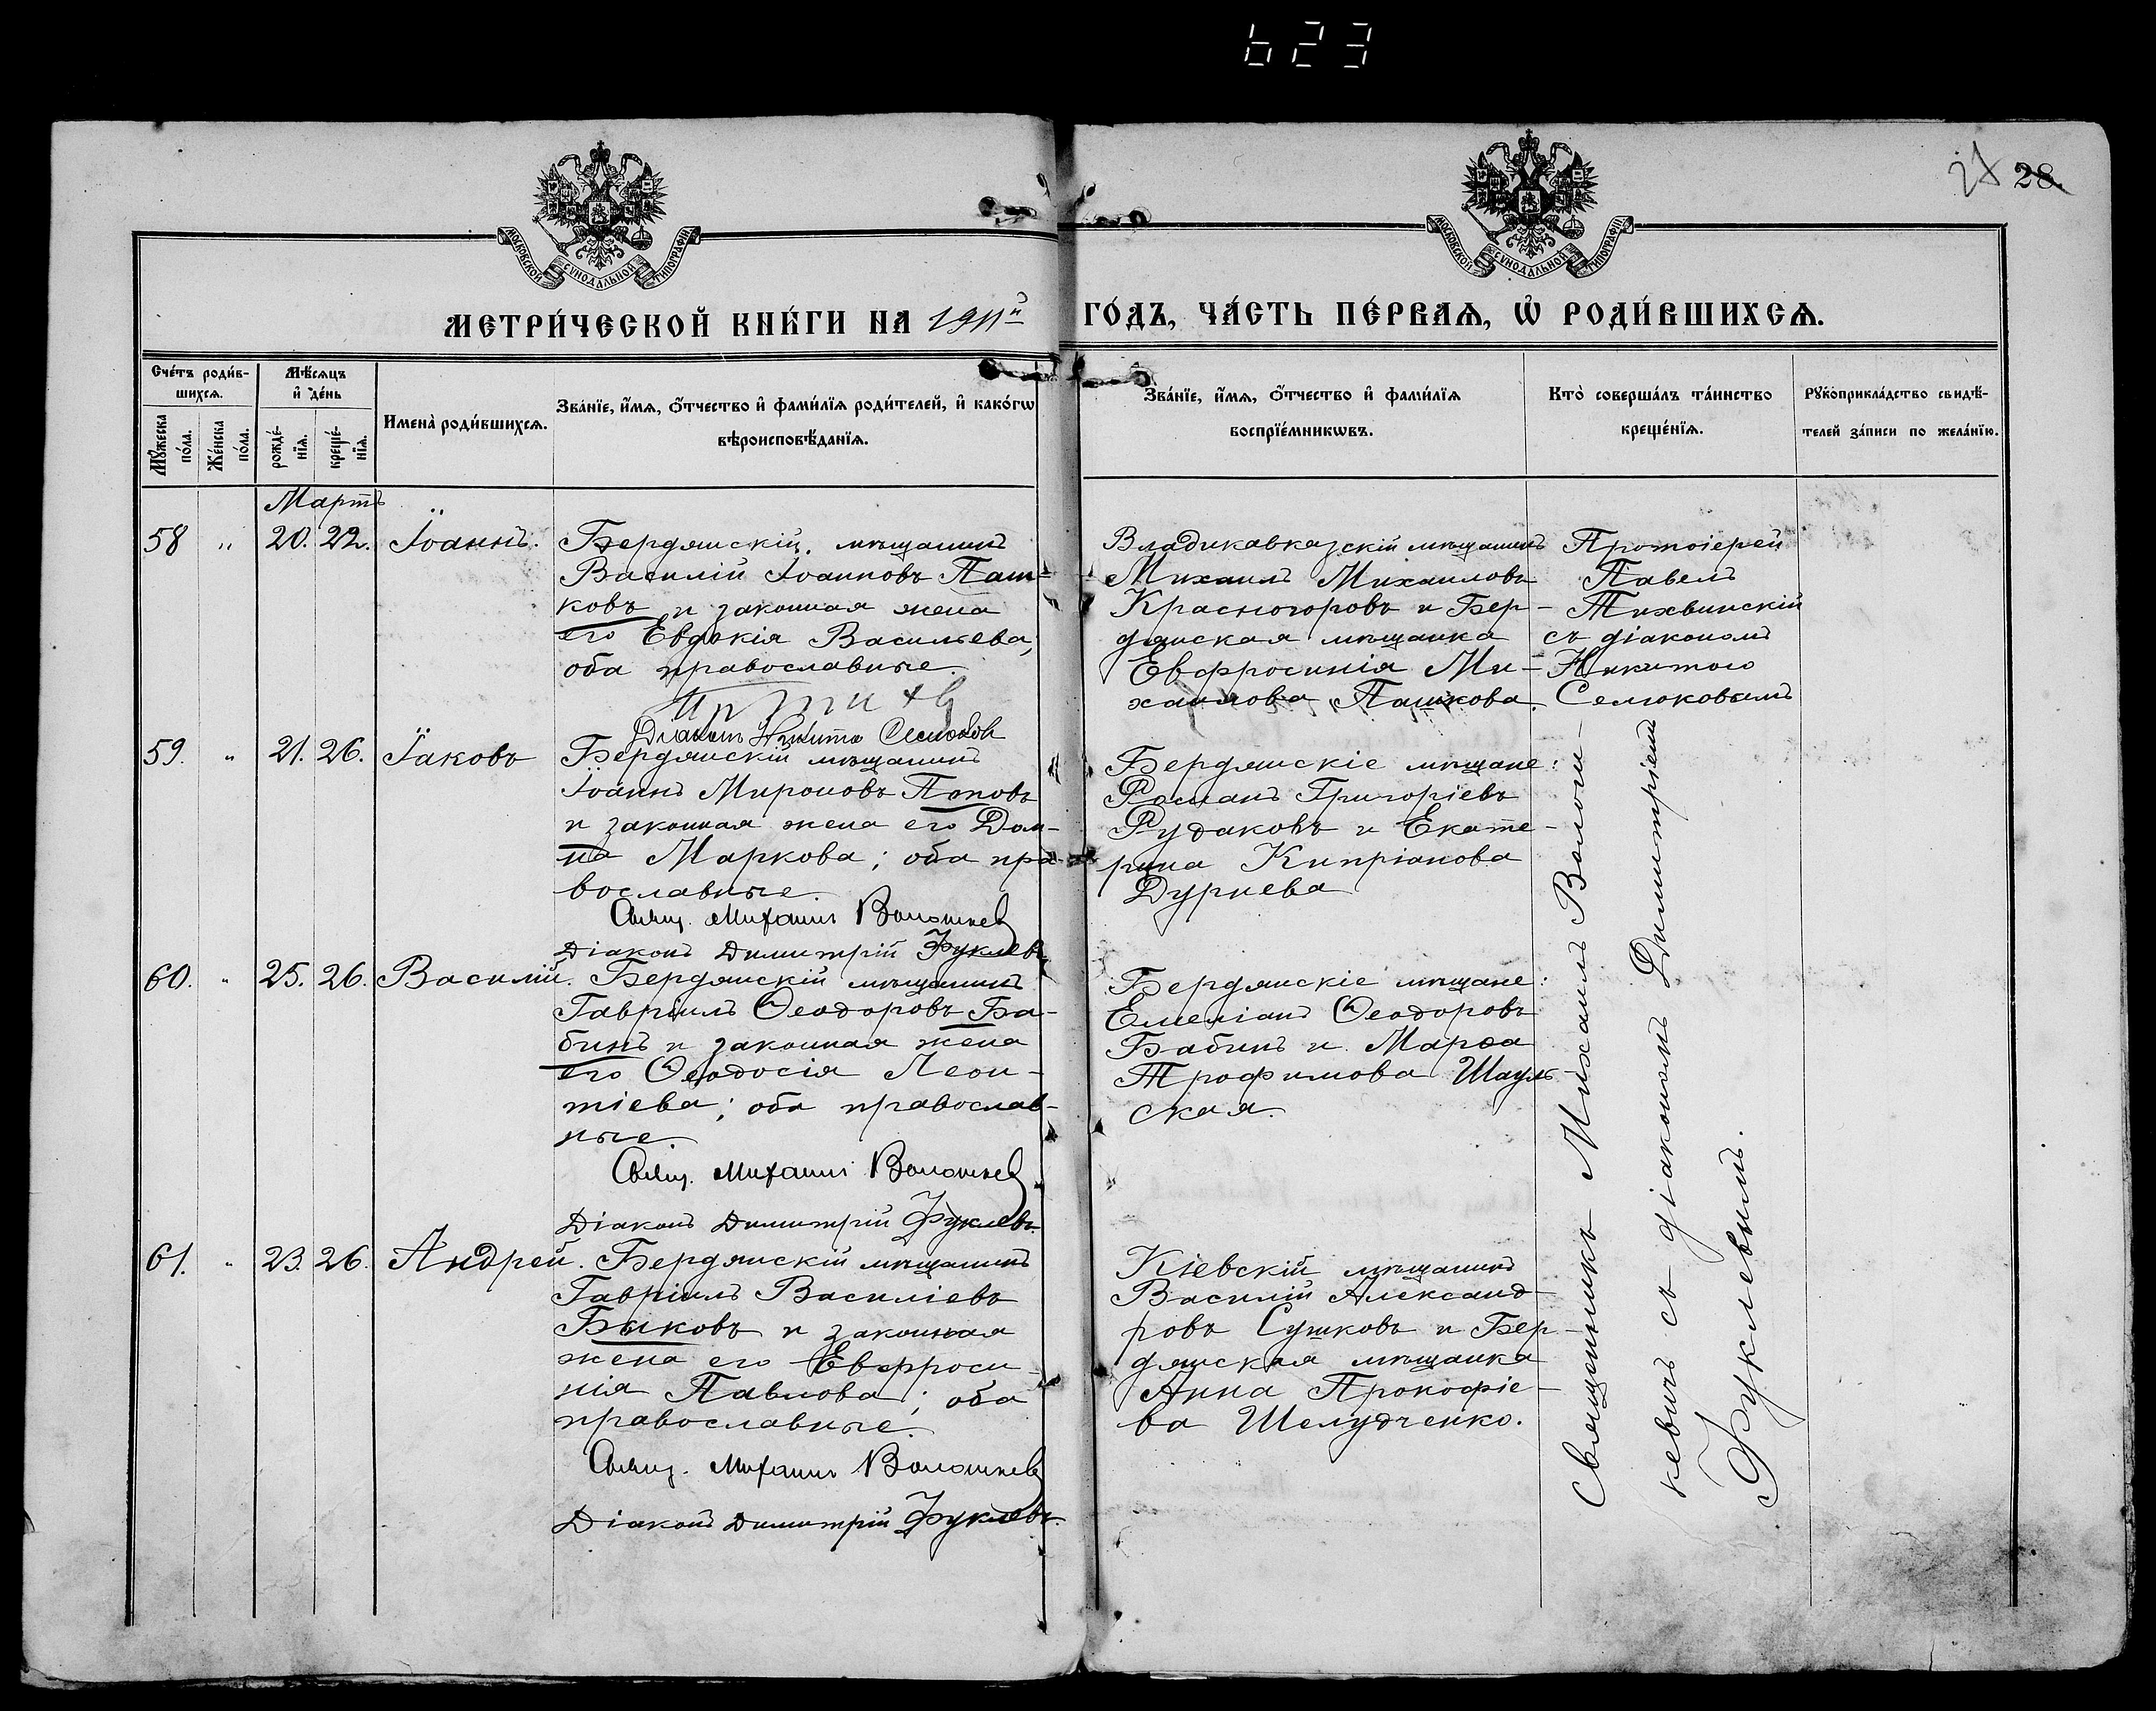 623
28.
МОСКОВСКОЙ СѴНОДАЛЬНОЙ ТИПОГРАФІИ
МОСКОВСКОЙ СѴНОДАЛЬНОЙ ТИПОГРАФІИ
МЕТРИ́ЧЕСКОЙ КНИ́ГИ НА 1911й ГО́ДЪ, ЧА́СТЬ ПЕ́РВАѦ, Ѡ҆ РОДИ́ВШИХСѦ.
Сче́тъ роди́в-
шихсѧ.
Мꙋ́жеска
по́ла.
Же́нска
по́ла.
Мѣ́сѧцъ
и҆ де́нь
рожде́-
нїѧ.
креще́-
нїѧ.
Имена̀ роди́вшихсѧ.
Зва́нїе, и҆́мѧ, ѻ҆́тчество и҆ фами́лїѧ роди́телей, и҆ како́гѡ
вѣроисповѣ́данїѧ.
Зва́нїе, и҆́мѧ, ѻ҆́тчество и҆ фами́лїѧ
воспрїе́мникѡвъ.
Кто̀ соверша́лъ та́инство
креще́нїѧ.
Рꙋкоприкла́дство свидѣ́-
телей за́писи по жела́нїю.
Мартъ
58 " 20. 22. Іоаннъ.
Бердянскій мѣщанинъ
Василій Іоанновъ Паш-
ковъ и законная жена
его Евдокія Васильева;
оба православные.
Діаконъ Никита Селюков
Владикавказскій мѣщанинъ
Михаилъ Михаиловъ
Красногоровъ и Бер-
дянская мѣщанка
Евфросинія Ми-
хаилова Пашкова.
Протоіерей
Павелъ
Тихвинскій
съ діакономъ
Никитою
Селюковымъ
59. " 21. 26. Іаковъ
Бердянскій мѣщанинъ
Іоаннъ Мироновъ Поповъ
и законная жена его Дом-
на Маркова; оба пра-
вославные.
Свящ. Михаилъ Волошкевич
Діаконъ Димитрій Фуклевъ
Бердянскіе мѣщане:
Романъ Григоріевъ
Рудаковъ и Екате-
рина Кипріанова
Дурнева
60. " 25. 26. Василій.
Бердянскій мѣщанинъ
Гавріилъ Ѳеодоровъ Ба-
бинъ и законная жена
его Ѳеодосія Леон-
тіева; оба православ-
ные.
Свящ. Михаилъ Волошкевич
Діаконъ Димитрій Фуклевъ.
Бердянскіе мѣщане:
Емеліанъ Ѳеодоровъ
Бабинъ и Марѳа
Трофимова Шауль-
ская.
61. " 23. 26. Андрей.
Бердянскій мѣщанинъ
Гавріилъ Василіевъ
Быковъ и законная
жена его Евфроси
нія Павлова; оба
православные.
Свящ. Михаилъ Волошкевич
Діаконъ Димитрій Фуклевъ.
Кіевскій мѣщанинъ
Василій Александ-
ровъ Сушковъ и Бер-
дянская мѣщанка
Анна Прокофіе-
ва Шелудченко.
Священникъ Михаилъ Волош-
кевичъ съ діакономъ Димитріемъ
Фуклевымъ.